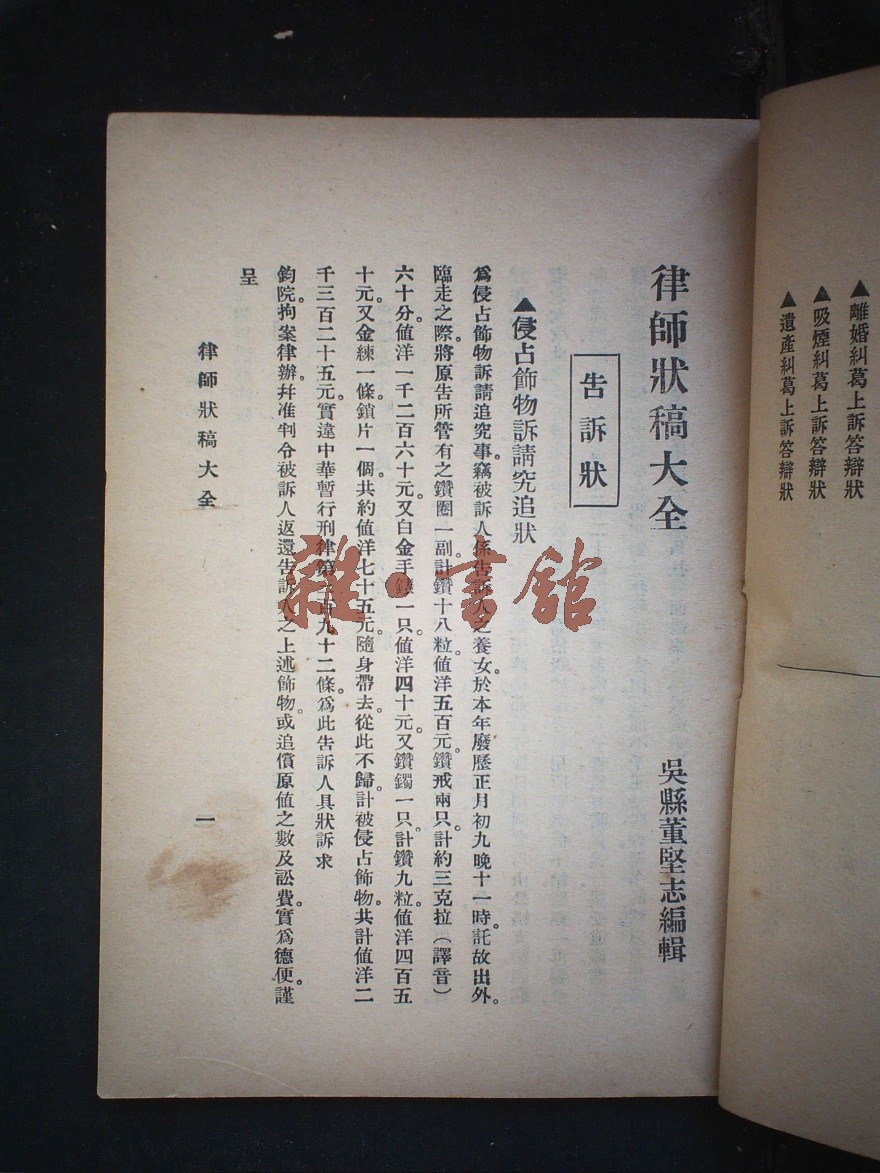 ▲離婚糾葛上訴答辯狀
▲吸煙糾葛上訴答辯狀
▲遺產糾葛上訴答辯狀
律師狀稿大全
吳縣董堅志編輯
告訴狀
▲侵占飾物訴請究追狀
爲侵占飾物訴請追究事。竊被訴人係告訴人之養女於本年廢歷正月初九晚十一時。託故出外。
臨走之際。將原告所管有之鑽圈一副。計鑽十八粒。値洋五百元。鑽戒兩只。計約三克拉（譯音）
六十分。値洋一千二百六十元。又白金手錶一只。値洋四十元。又鑽鐲一只。計鑽九粒。値洋四百五
十元。又金練一條。鎖片一個。共約値洋七十五元。隨身帶去。從此不歸。計被侵占飾物。共計値洋二
千三百二十五元。實違中華暫行刑律第百九十二條。爲此告訴人具狀訴求
鈞院。拘案律辦。幷准判令被訴人返還告訴人之上述飾物。或追償原值之數及訟費。實爲德便。謹
呈
律師狀稿大全
一
雜·書館